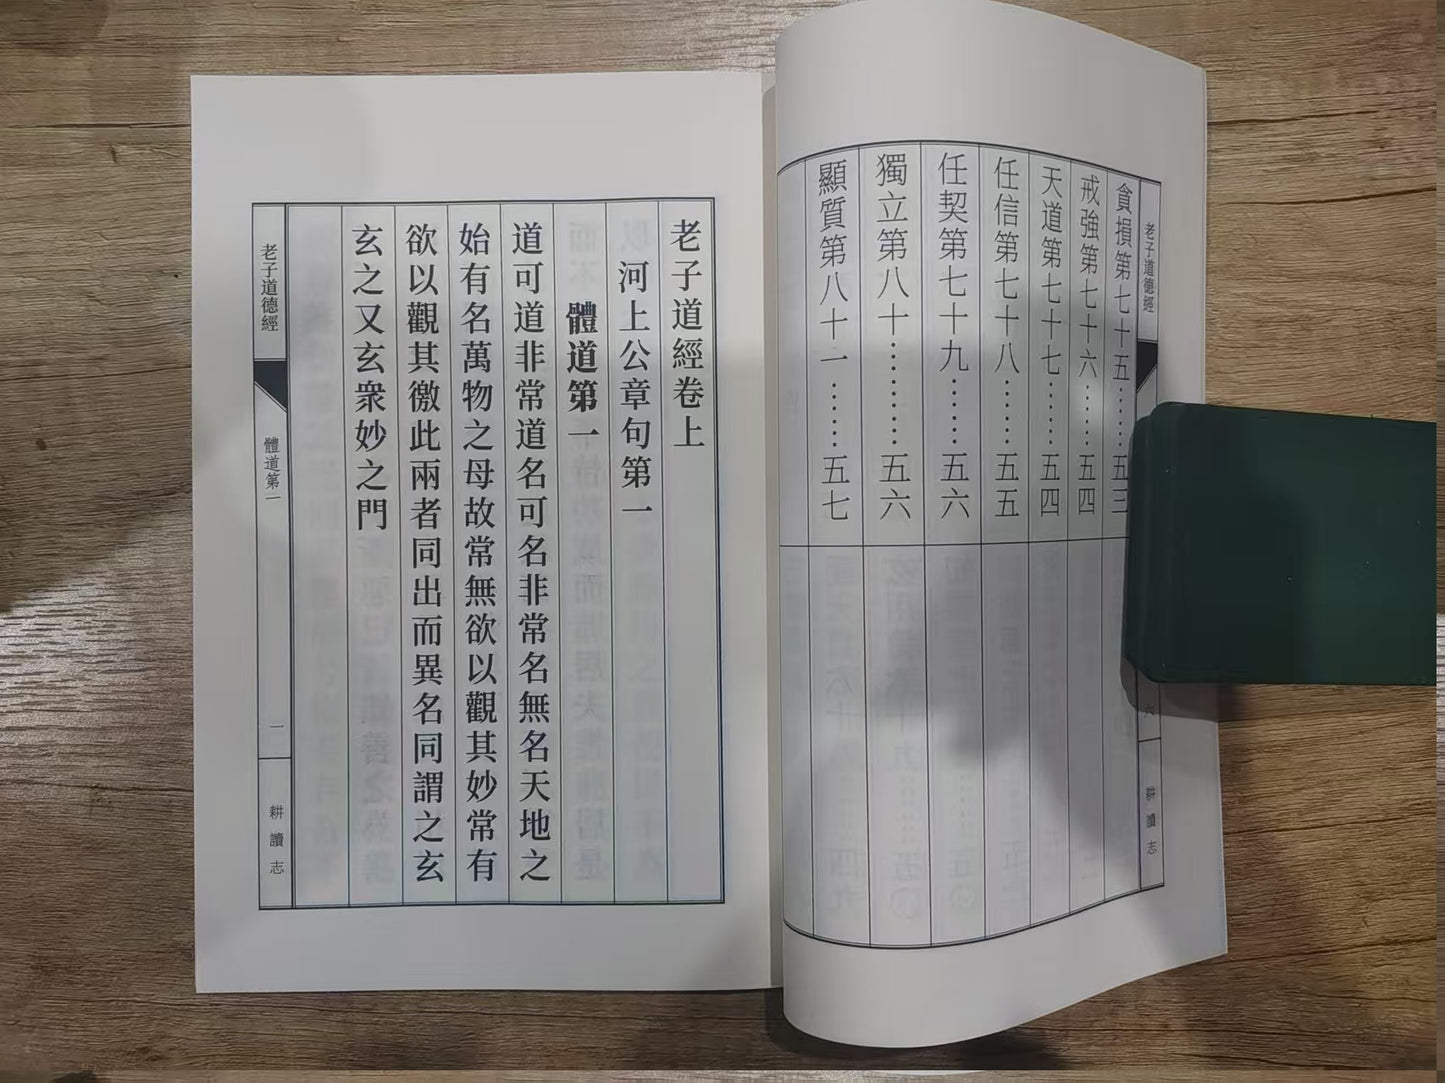 老子道德經
六
耕讀志
貪損第七十五……五三
戒強第七十六……五四
天道第七十七……五四
任信第七十八……五五
任契第七十九……五六
獨立第八十…………五六
顯質第八十一……五七
老子道經卷上
河上公章句第一
體道第一
道可道非常道名可名非常名無名天地之
始有名萬物之母故常無欲以觀其妙常有
欲以觀其徼此兩者同出而異名同謂之玄
玄之又玄衆妙之門
老子道德經
體道第一
一
耕讀志